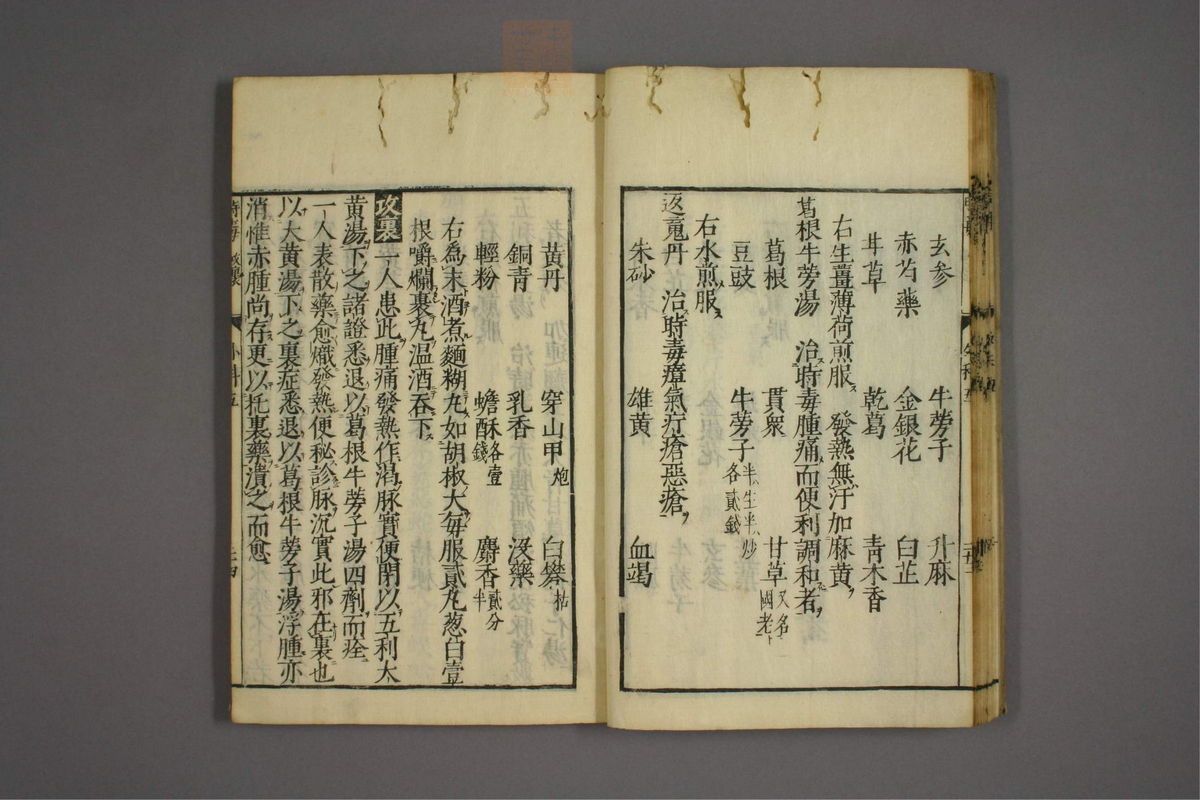 玄参 牛蒡子 升麻
赤芍藥 金銀花 白芷
甘草 乾葛 青木香
右生薑薄荷煎服ス 發熱無汗加麻黄ヲ
葛根牛蒡湯 治時毒腫痛而便利調和者ヲ
葛根 貫衆 甘草又名國老ト
豆豉 牛蒡子半生半炒各貳錢
右水煎服ス
返䰟丹 治時毒瘴氣疔瘡惡瘡ヲ
朱砂 雄黄 血竭
黄丹 穿山甲炮 白礬枯
銅青 乳香 没藥
輕粉 蟾酥各壹錢 麝香貳分半
右為末酒煮麵糊丸如胡椒大每服貳丸葱白壹
根嚼爛裹丸温酒吞下ス
攻裏 一人患此腫痛發熱作渇脉實便閉以五利大
黄湯下之諸證悉退以葛根牛蒡子湯四劑而痊
一人表散藥愈熾發熱便秘診脉沉實此邪在裏也
以大黄湯下之裏症悉退以葛根牛蒡子湯浮腫亦
消惟赤腫尚存更以托裏藥潰之而愈